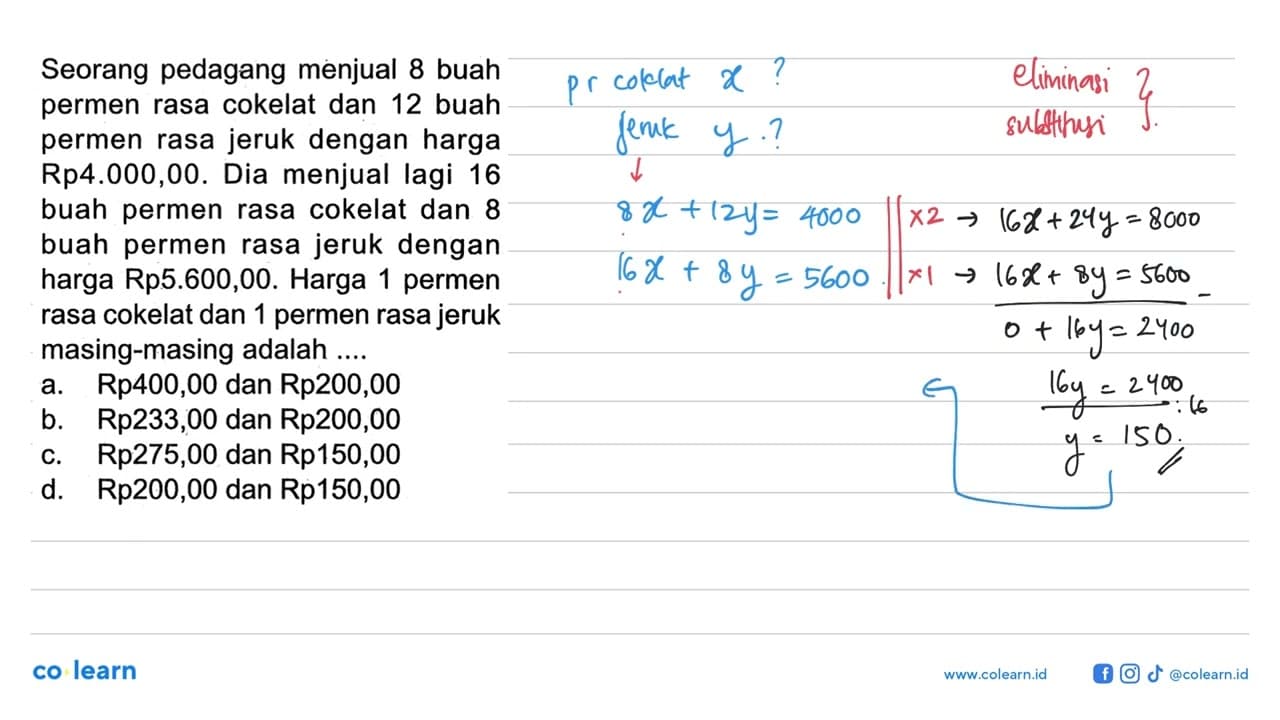 Seorang pedagang menjual 8 buah
permen rasa cokelat dan 12 buah
permen rasa jeruk dengan harga
Rp4.000,00. Dia menjual lagi 16
buah permen rasa cokelat dan 8
buah permen rasa jeruk dengan
harga Rp5.600,00. Harga 1 permen
rasa cokelat dan 1 permen rasa jeruk
masing-masing adalah ....
a. Rp400,00 dan Rp200,00
b. Rp233,00 dan Rp200,00
c. Rp275,00 dan Rp150,00
d. Rp200,00 dan Rp150,00
pr coklat x ?
jeruk y . ?
↓
8x + 12y = 4000
16x + 8y = 5600
eliminasi
substitusi
×2 → 16x + 24y = 8000
×1 → 16x + 8y = 5600 −
0 + 16y = 2400
16y = 2400 : 16
y = 150.
co learn
www.colearn.id
@colearn.id